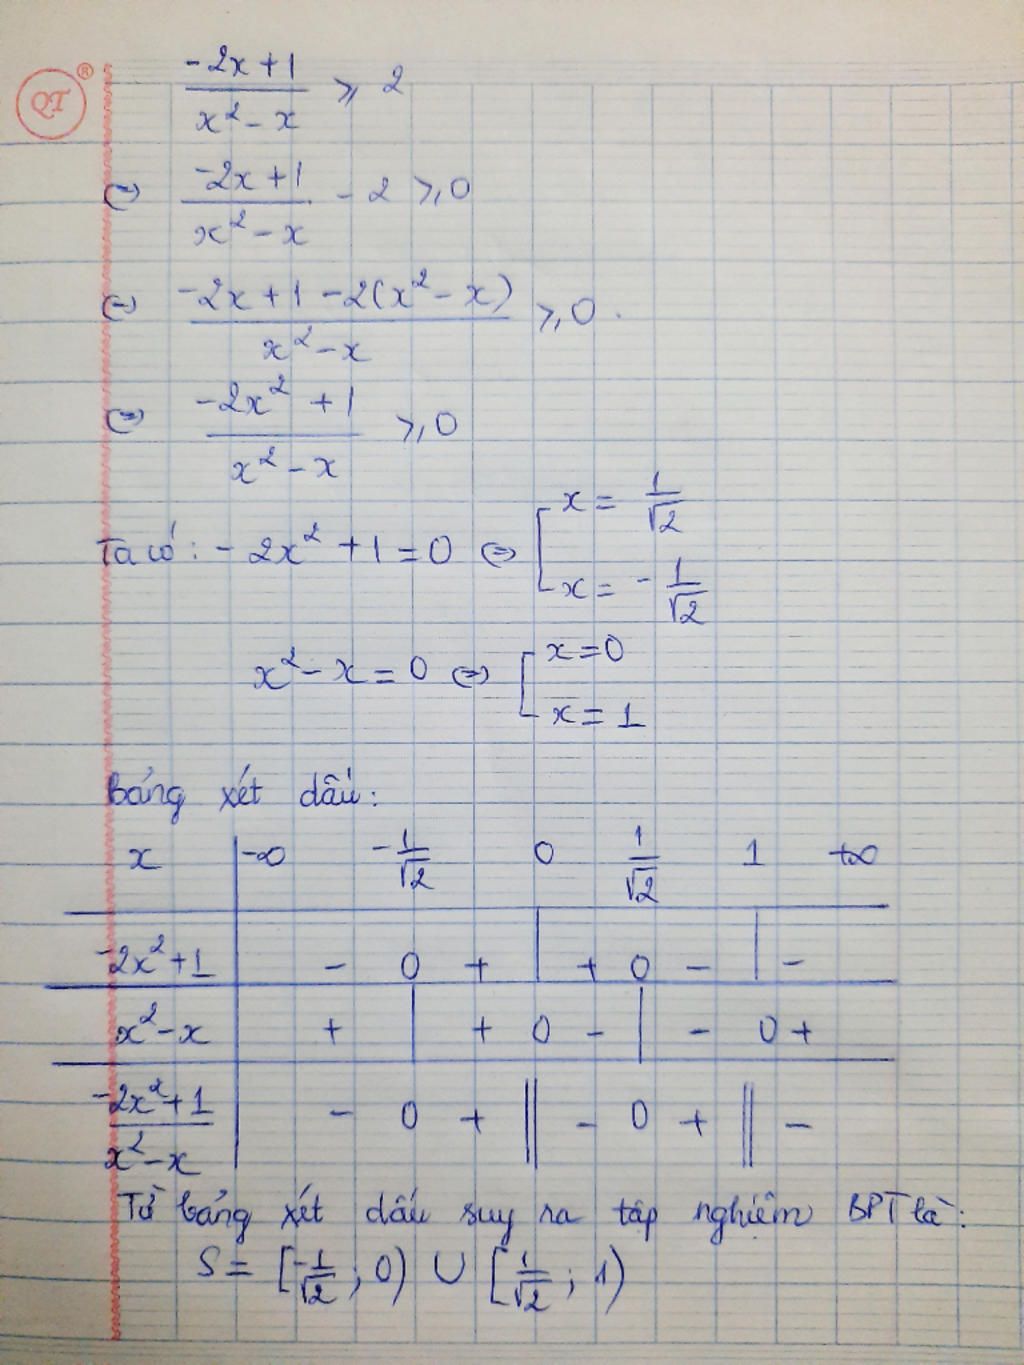 QT ®
(-2x+1)/(x² - x) ≥ 2
⇔ (-2x+1)/(x² - x) - 2 ≥ 0
⇔ (-2x+1-2(x² - x))/(x² - x) ≥ 0.
⇔ (-2x² + 1)/(x² - x) ≥ 0
Ta có: - 2x² + 1 = 0 ⇔ [ x = 1/√2
x = - 1/√2
x² - x = 0 ⇔ [ x = 0
x = 1
Bảng xét dấu:
x | -∞ -1/√2 0 1/√2 1 +∞
-2x²+1 | - 0 + | + 0 - | -
x² - x | + | + 0 - | - 0 +
(-2x²+1)/(x² - x) | - 0 + || - 0 + || -
Từ bảng xét dấu suy ra tập nghiệm BPT là:
S = [-1/√2 ; 0) ∪ [1/√2 ; 1)